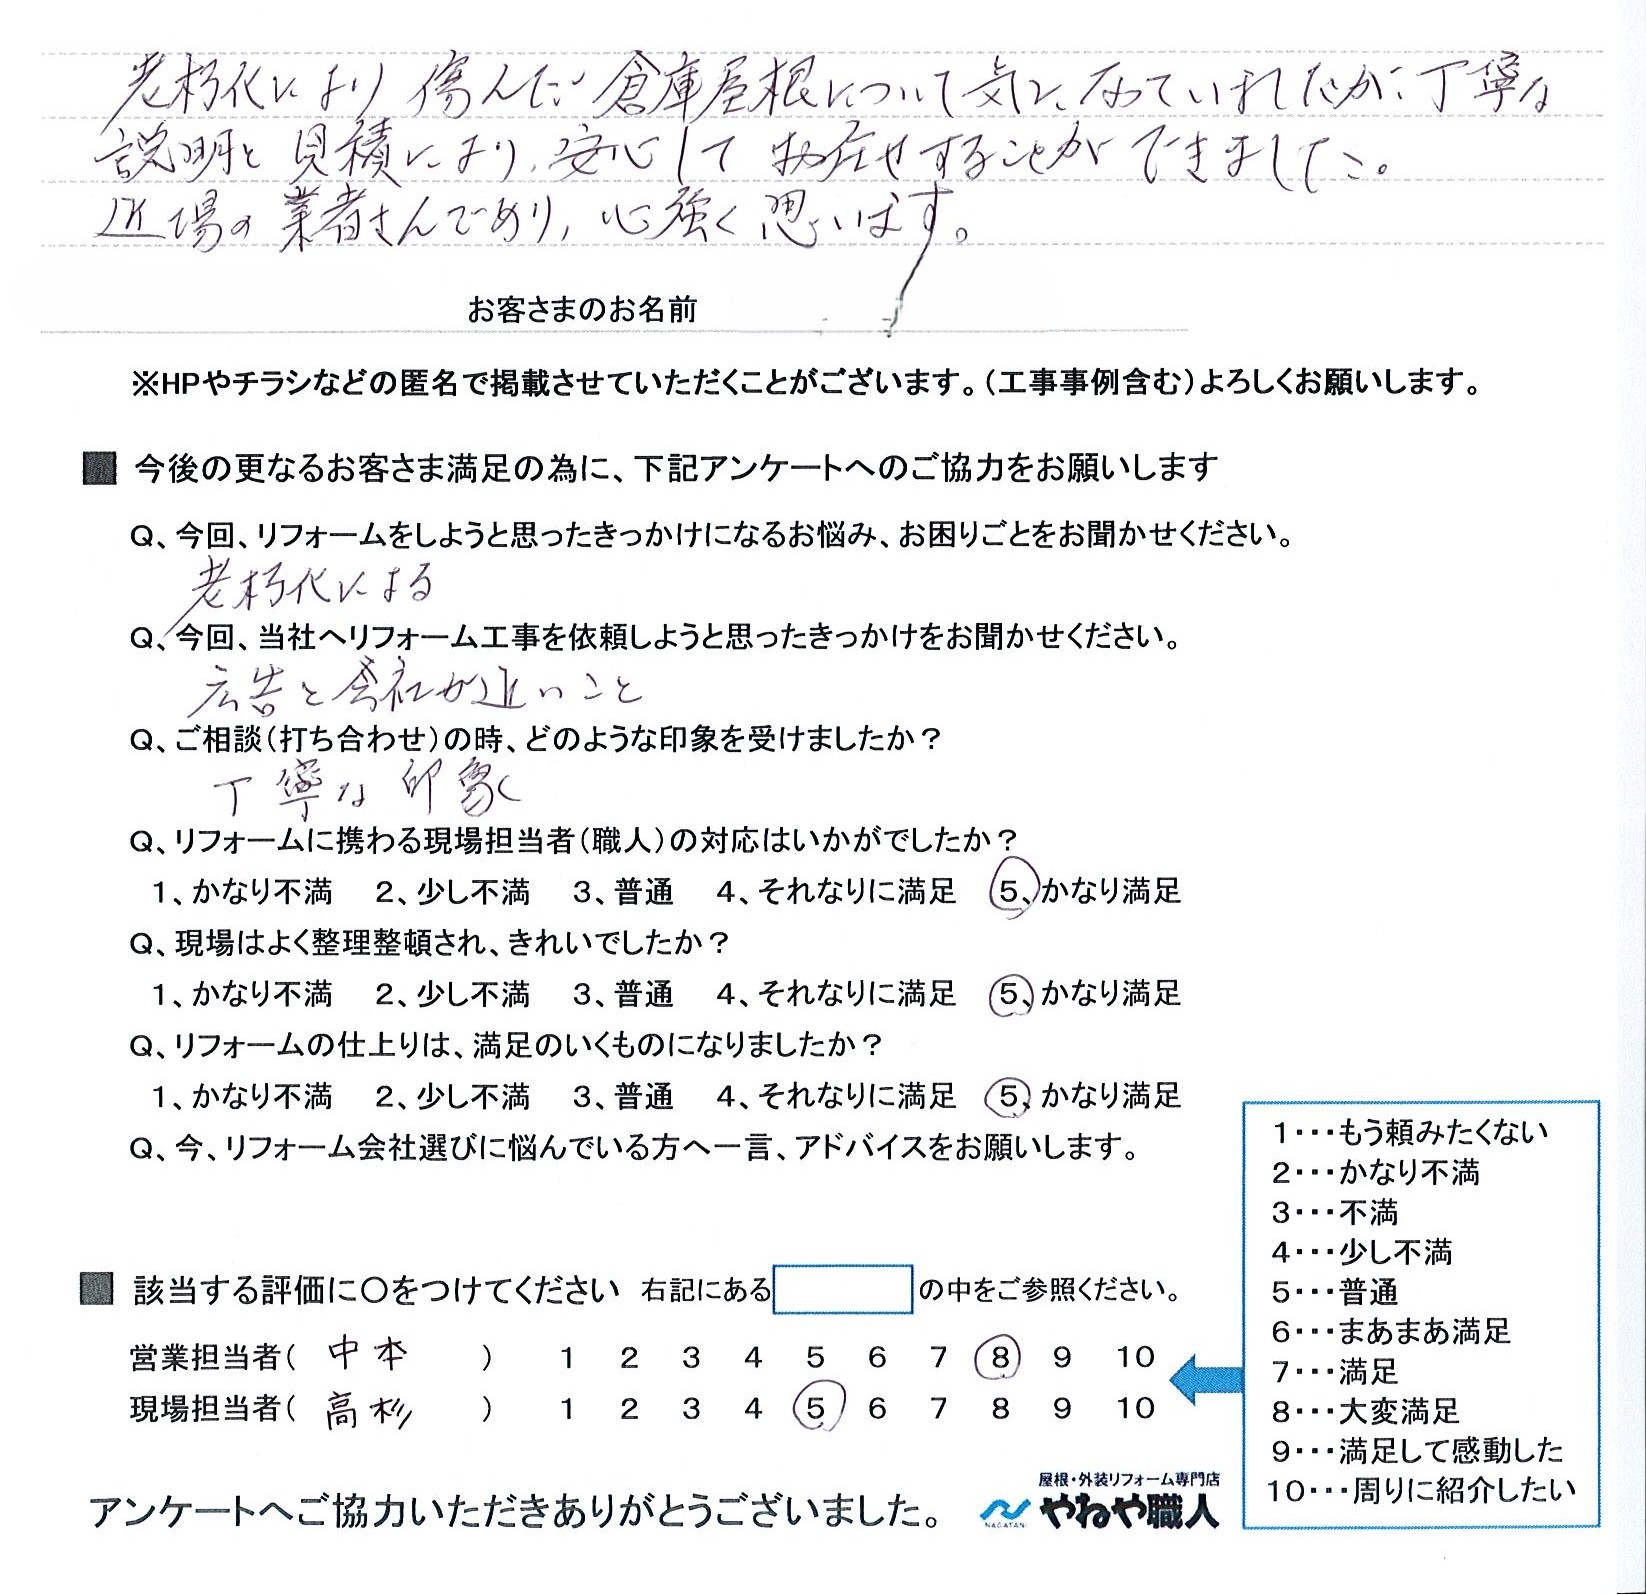 老朽化により傷んだ倉庫屋根について気になっていましたが、丁寧な
説明と見積により、安心してお任せすることができました。
近場の業者さんであり、心強く思います。
お客さまのお名前
※HPやチラシなどの匿名で掲載させていただくことがございます。(工事事例含む)よろしくお願いします。
■ 今後の更なるお客さま満足の為に、下記アンケートへのご協力をお願いします
Q、今回、リフォームをしようと思ったきっかけになるお悩み、お困りごとをお聞かせください。
老朽化による
Q、今回、当社へリフォーム工事を依頼しようと思ったきっかけをお聞かせください。
広告と会社が近いこと
Q、ご相談(打ち合わせ)の時、どのような印象を受けましたか?
丁寧な印象
Q、リフォームに携わる現場担当者(職人)の対応はいかがでしたか?
1、かなり不満 2、少し不満 3、普通 4、それなりに満足 5、かなり満足
Q、現場はよく整理整頓され、きれいでしたか?
1、かなり不満 2、少し不満 3、普通 4、それなりに満足 5、かなり満足
Q、リフォームの仕上りは、満足のいくものになりましたか?
1、かなり不満 2、少し不満 3、普通 4、それなりに満足 5、かなり満足
Q、今、リフォーム会社選びに悩んでいる方へ一言、アドバイスをお願いします。
■ 該当する評価に〇をつけてください 右記にある の中をご参照ください。
営業担当者( 中本 ) 1 2 3 4 5 6 7 8 9 10
現場担当者( 高杉 ) 1 2 3 4 5 6 7 8 9 10
1・・・もう頼みたくない
2・・・かなり不満
3・・・不満
4・・・少し不満
5・・・普通
6・・・まあまあ満足
7・・・満足
8・・・大変満足
9・・・満足して感動した
10・・・周りに紹介したい
アンケートへご協力いただきありがとうございました。
NAGATANI
屋根・外装リフォーム専門店
やねや職人